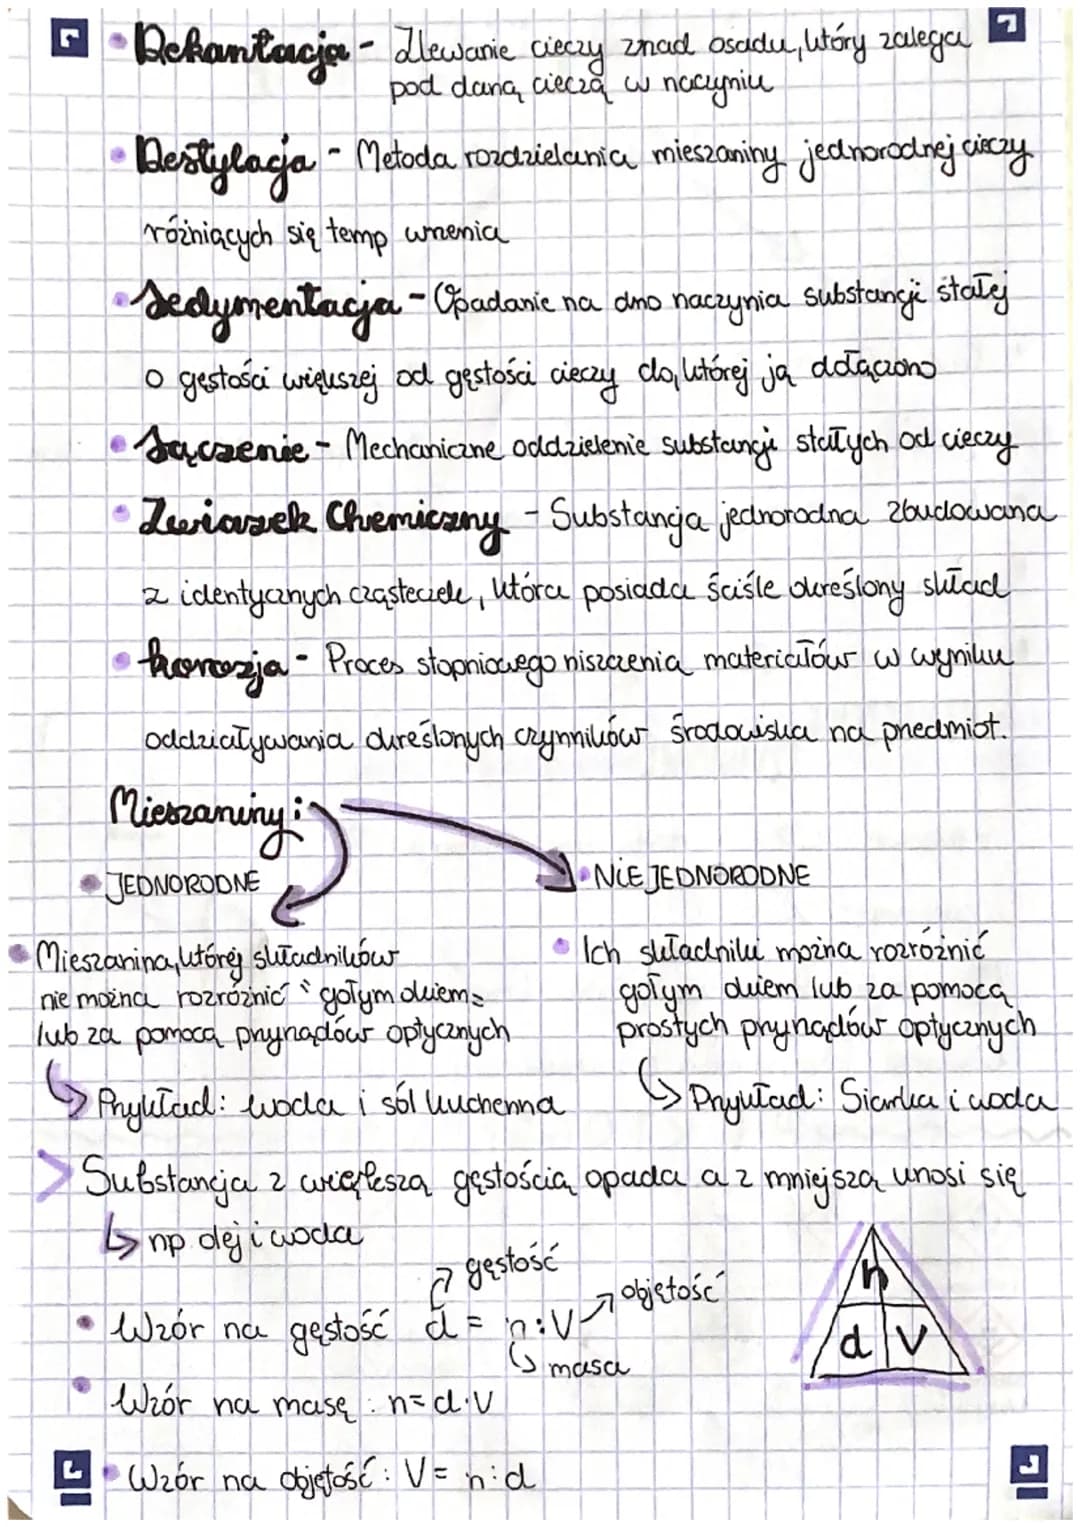 Dekantacja - Zlewanie cieczy znad osadu, który zalega
pod daną cieczą w naczyniu
Destylacja - Metoda rozdzielania mieszaniny jednorodnej cieczy
różniących się temp wrzenia
Sedymentacja - Opadanie na dno naczynia substancji stałej
o gęstości większej od gęstości cieczy do, której ją dołączono
Sączenie - Mechaniczne oddzielenie substancji stałych od cieczy
Związek Chemiczny - Substancja jednorodna zbudowana
z identycznych cząsteczek, która posiada ściśle określony skład
korozja - Proces stopniowego niszczenia materiałów w wyniku
oddziaływania określonych czynników środowiska na przedmiot.
Mieszaniny:
JEDNORODNE
NIEJEDNORODNE
Mieszanina, której składników
nie można rozróżnić "gołym okiem"
lub za pomocą przyrządów optycznych
Przykład: woda i sól kuchenna
Ich składniki można rozróżnić
gołym okiem lub za pomocą
prostych przyrządów optycznych
Przykład: Siarka i woda
> Substancja z większą gęstością opada a z mniejszą unosi się
np. olej i woda
gęstość
objętość
Wzór na gęstość d = n:V
masa
Wzór na masę : n=d·V
Wzór na objętość: V= n:d
n
d V